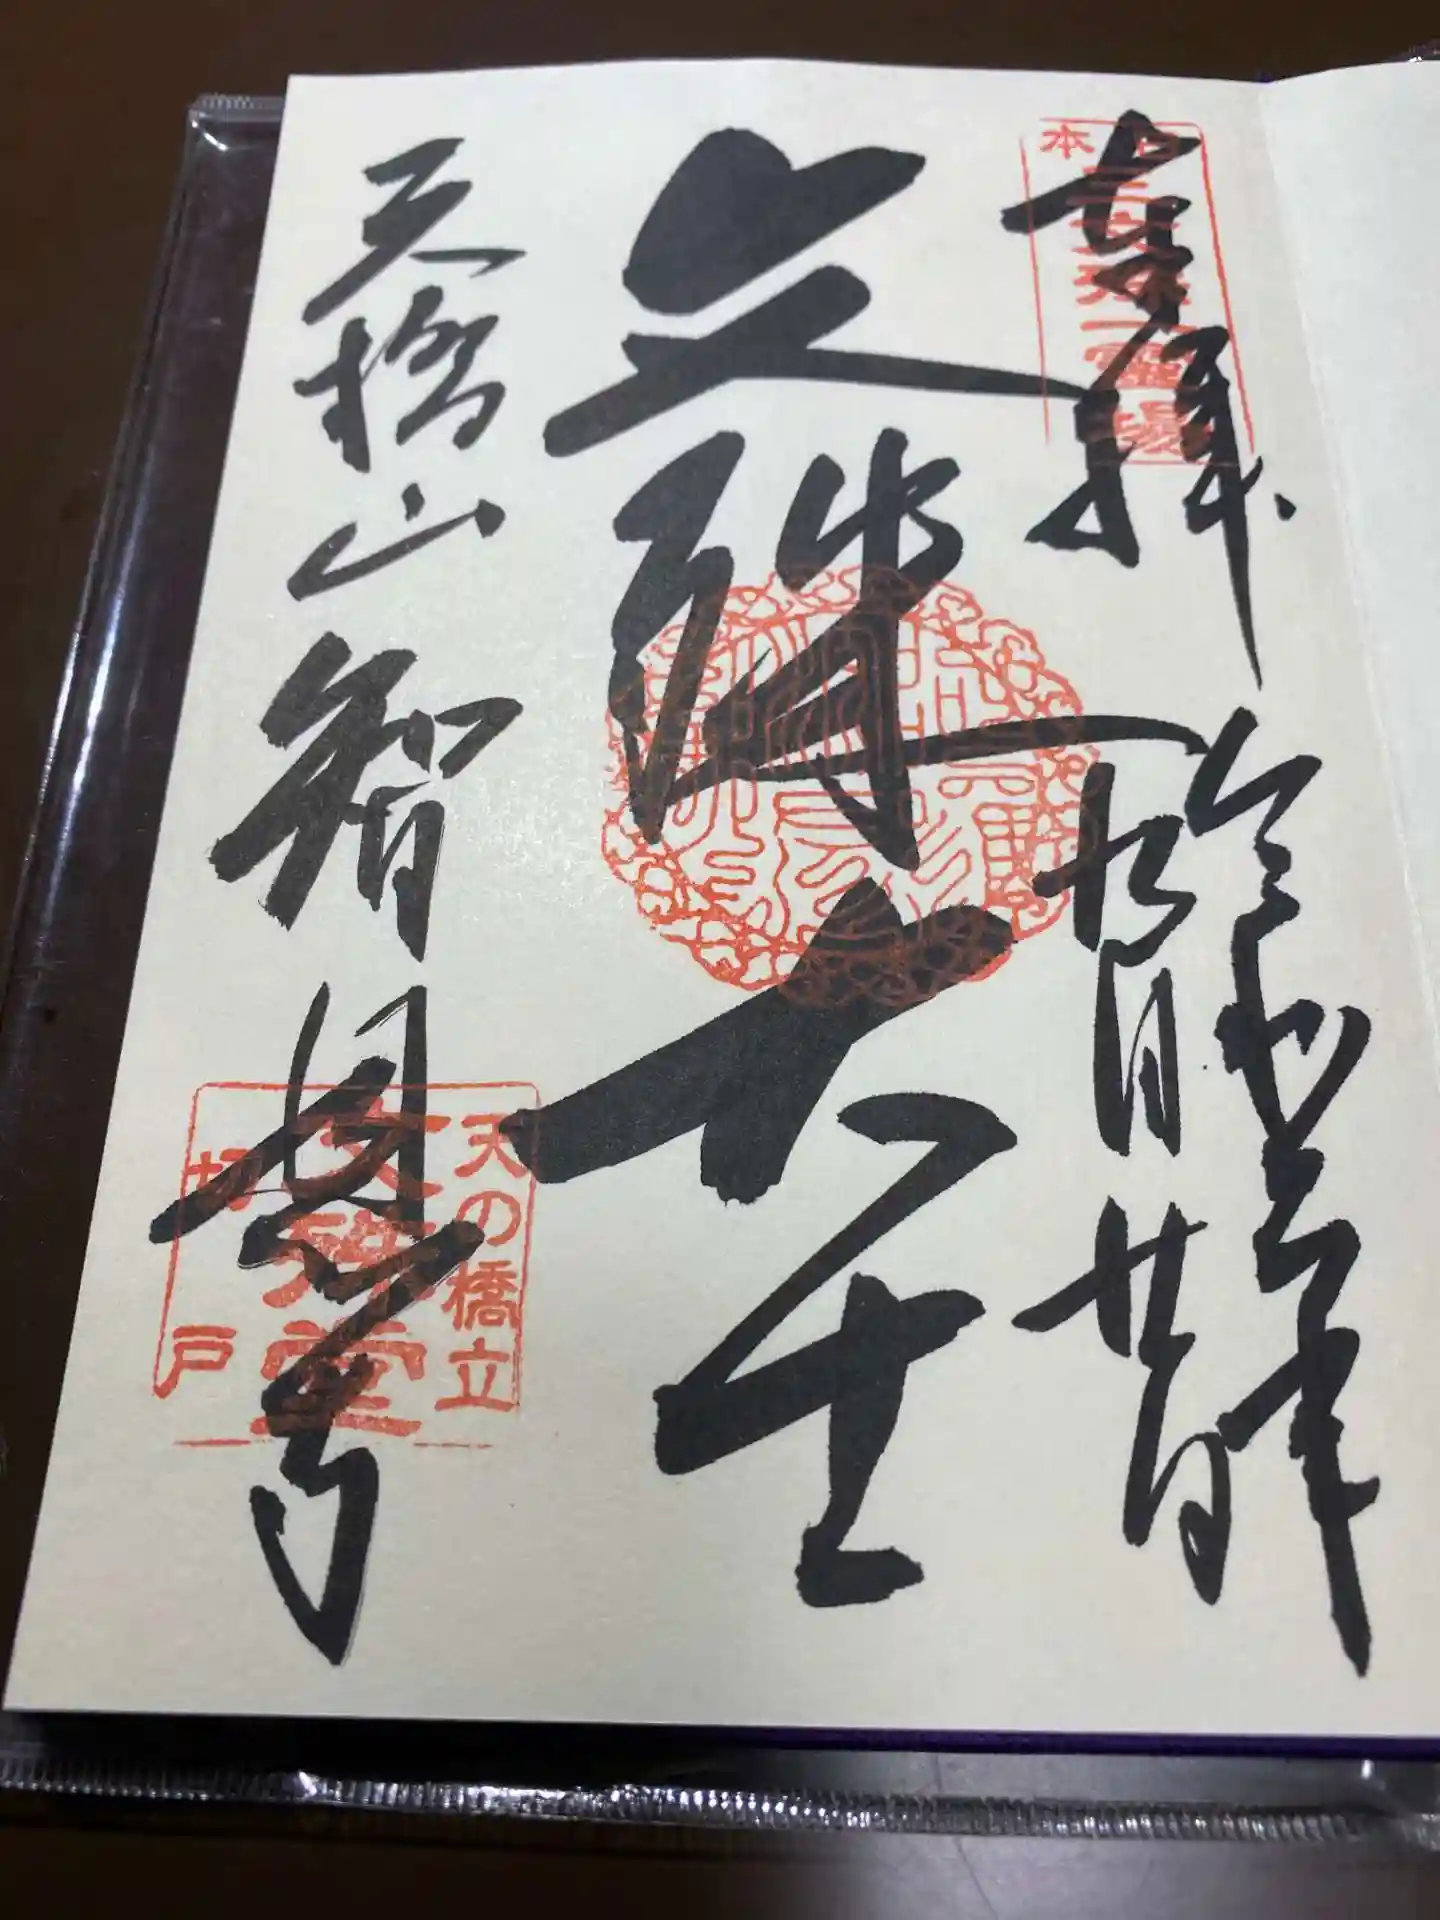 奉拝
日本三文殊第一霊場
令和五年
月廿日
文殊大士
天橋山智恩寺
天の橋立
文殊堂
切戸